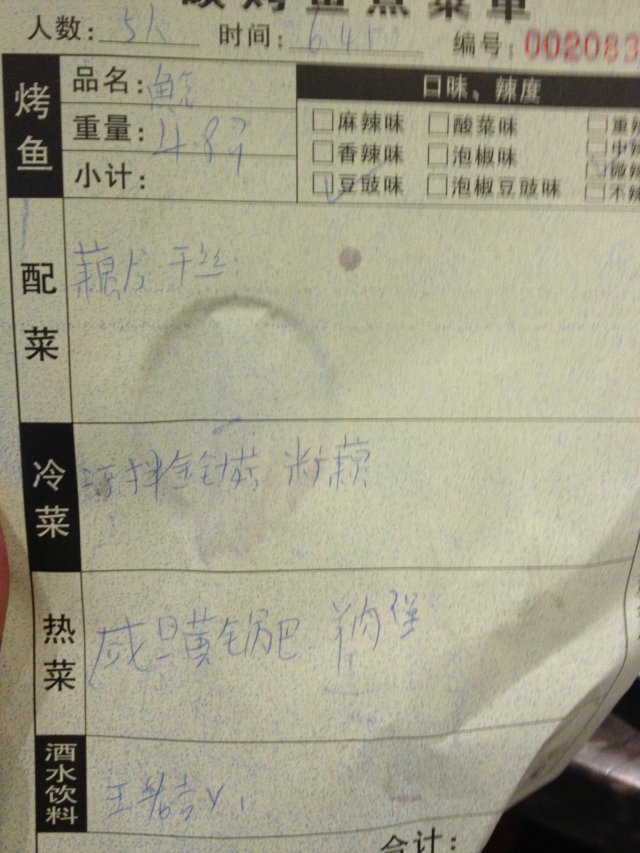 烤鱼点菜单
人数: 5人 时间: 6.45 编号: 002083
烤鱼
品名:
口味、辣度
重量: 4.8斤
小计:
麻辣味 酸菜味
香辣味 泡椒味
豆豉味 泡椒豆豉味
配菜
藕片 干丝
冷菜
凉拌金针菇 米藕
热菜
咸旦黄锅巴 羊肉堡
酒水饮料
王老吉
合计: